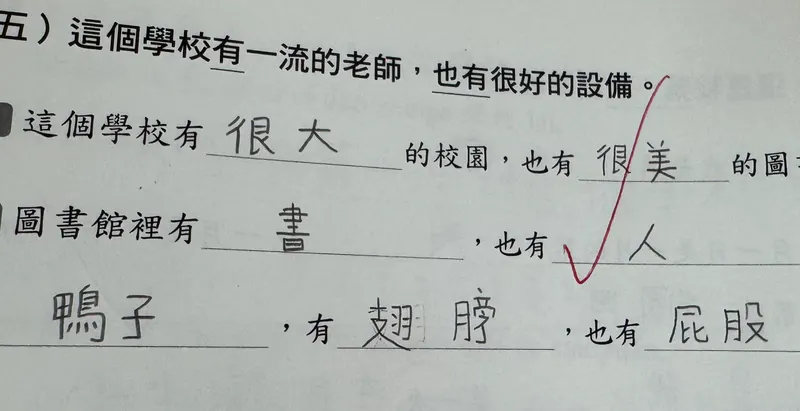 五）這個學校有一流的老師，也有很好的設備。
這個學校有很大的校園，也有很美的圖
圖書館裡有書，也有人
鴨子，有翅膀，也有屁股